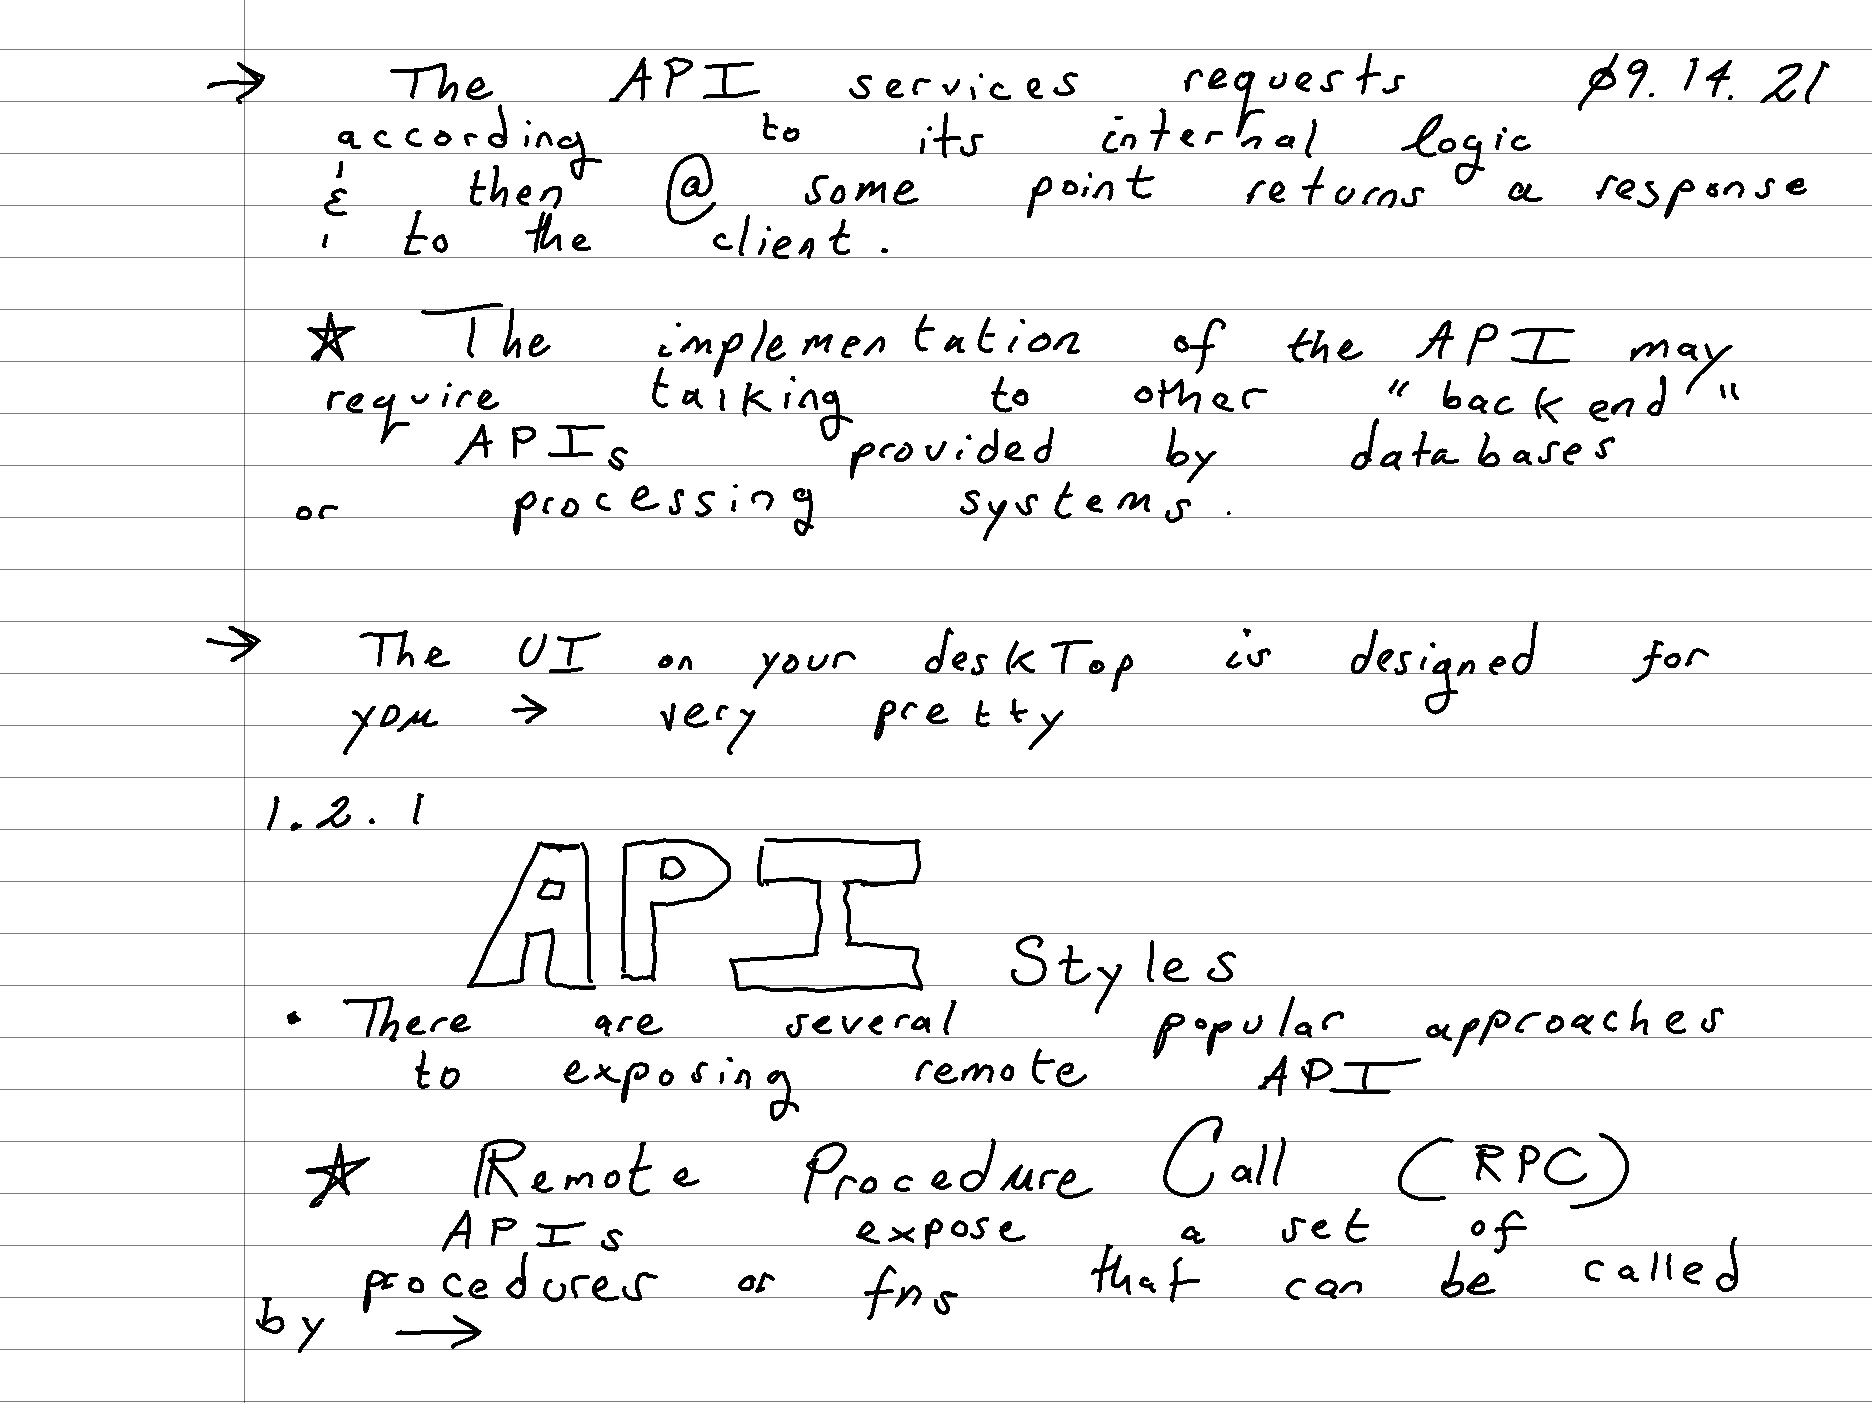 → The API services requests 09.14.21
according to its internal logic
& then @ some point returns a response
to the client.
☆ The implementation of the API may
require talking to other "backend"
APIs provided by databases
or processing systems.
→ The UI on your deskTop is designed for
you → very pretty
1.2.1
API Styles
• There are several popular approaches
to exposing remote API
☆ Remote Procedure Call (RPC)
APIs expose a set of
procedures or fns that can be called
by →